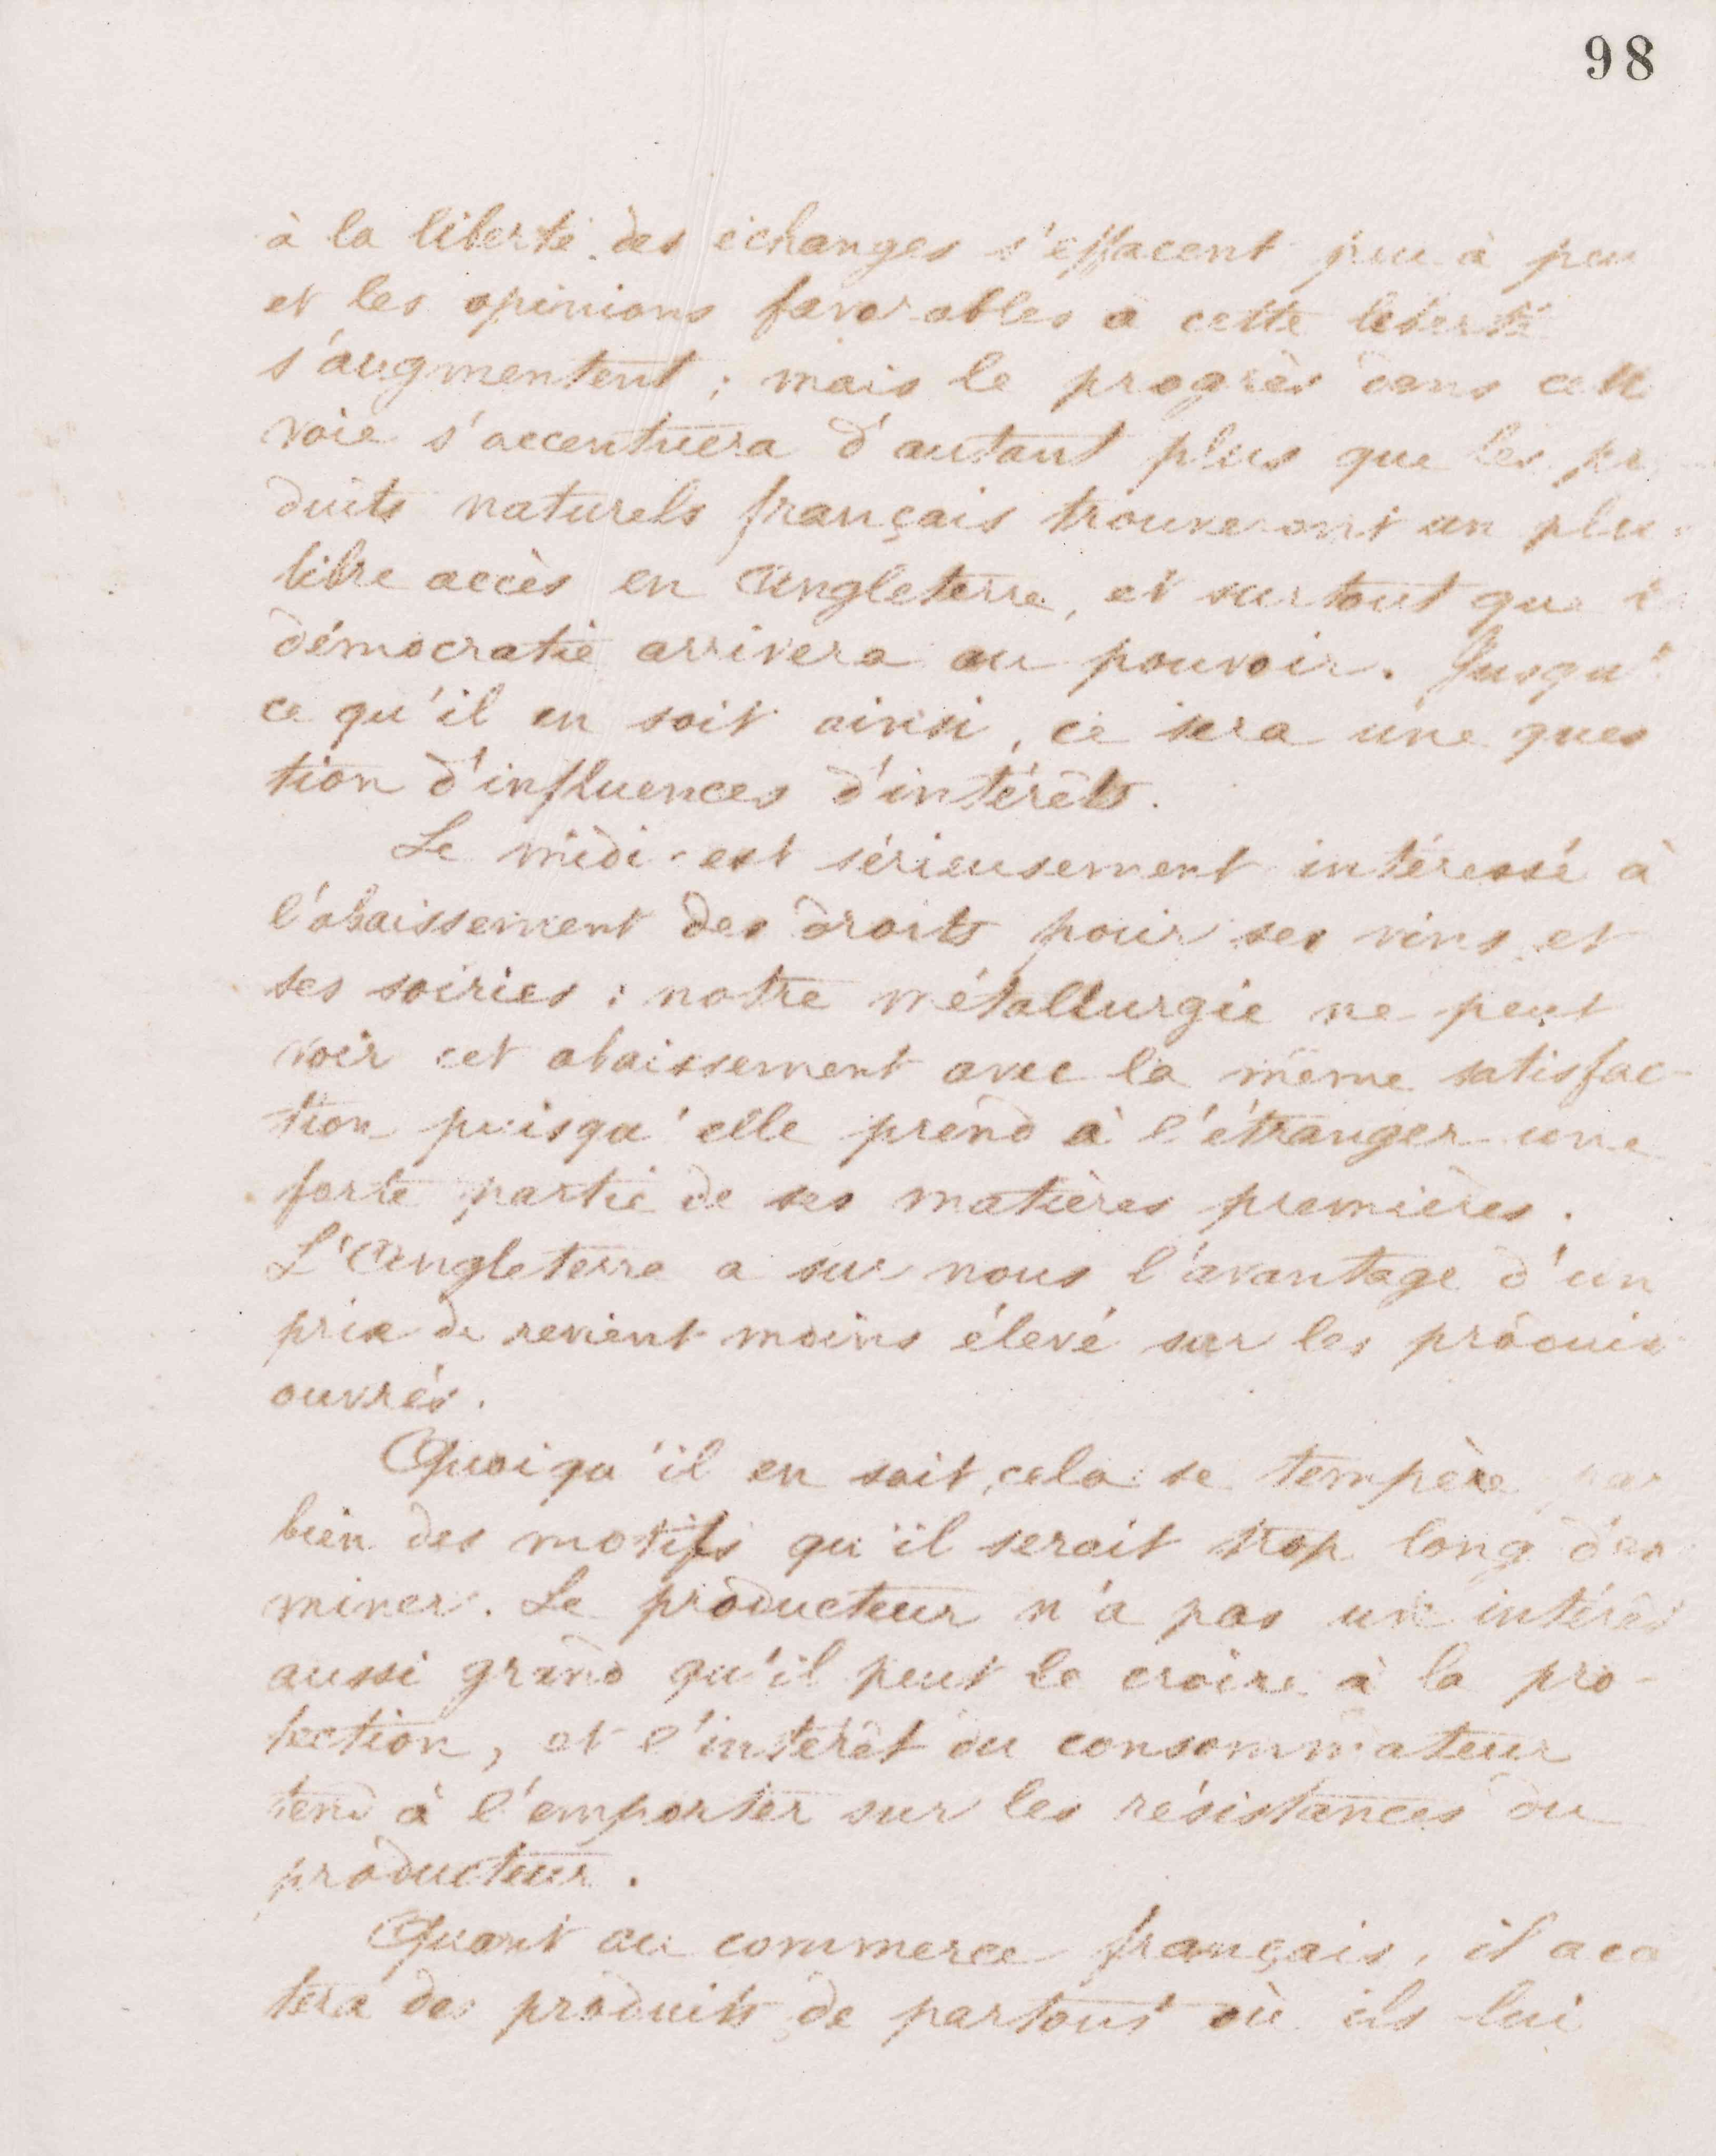 98
à la liberté des échanges s'effacent peu à peu
et les opinions favorables à cette liberté
s'augmentent ; mais le progrès dans cette
voie s'accentuera d'autant plus que les pro
duits naturels français trouveront un plus
libre accès en Angleterre, et surtout que la
démocratie arrivera au pouvoir. Jusqu'à
ce qu'il en soit ainsi, ce sera une ques
tion d'influences d'intérêts.
Le midi est sérieusement intéressé à
l'abaissement des droits pour ses vins et
ses soiries : notre métallurgie ne peut
voir cet abaissement avec la même satisfac-
tion puisqu'elle prend à l'étranger une
forte partie de ses matières premières.
L'Angleterre a sur nous l'avantage d'un
prix de revient moins élevé sur les produits
ouvrés.
Quoiqu'il en soit, cela se tempère par
bien des motifs qu'il serait trop long d'exa
miner. Le producteur n'a pas un intérêt
aussi grand qu'il peut le croire à la pro-
tection, et l'intérêt du consommateur
tend à l'emporter sur les résistances du
producteur.
Quant au commerce français, il
tera des produits de partout où ils lui